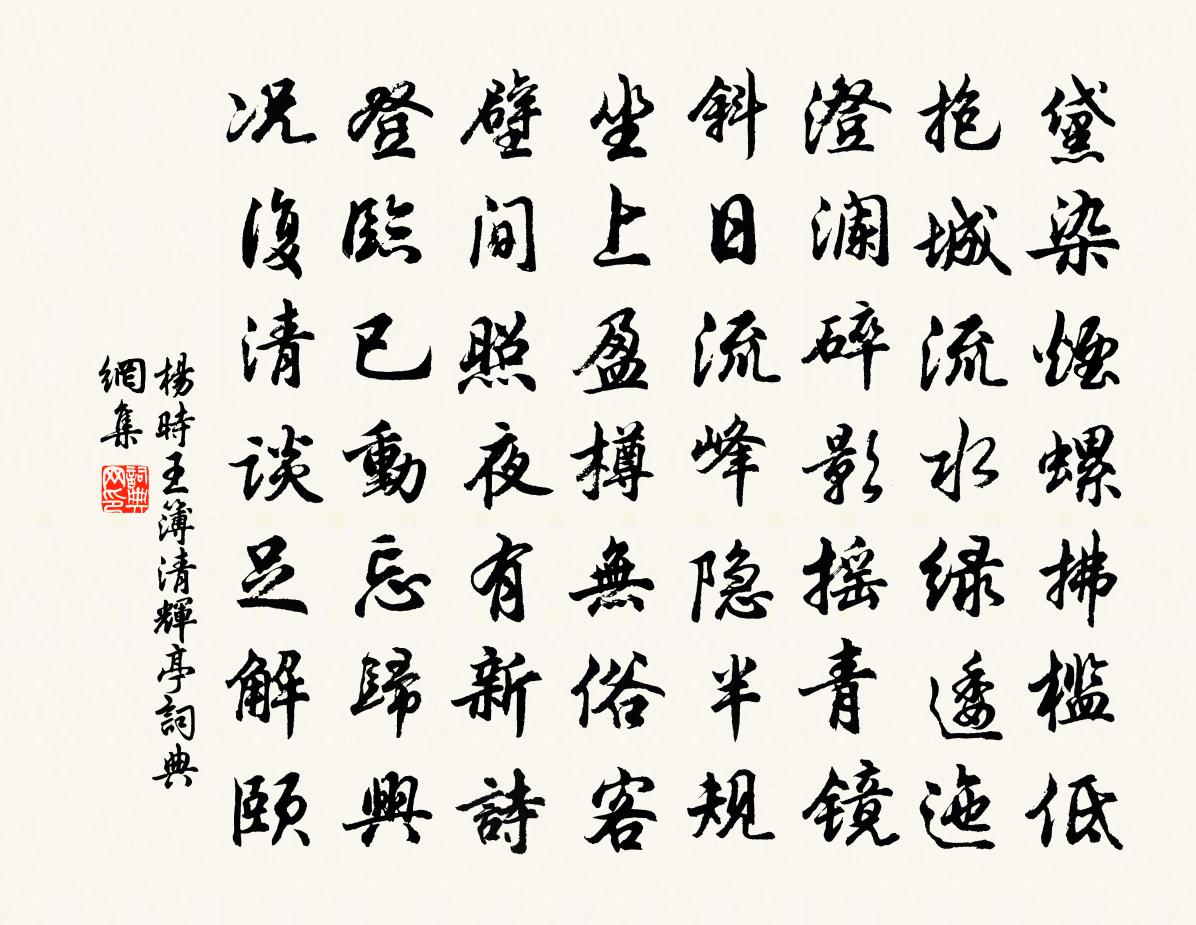 黛染煙螺拂檻低
抱城流水绿逶迤
澄瀾碎影摇青镜
斜日流峰隐半规
坐上盈樽無俗客
壁间照夜有新詩
登臨已動忘歸興
况復清谈足解颐
楊時王簿清輝亭詞典
網集
詞典
网印